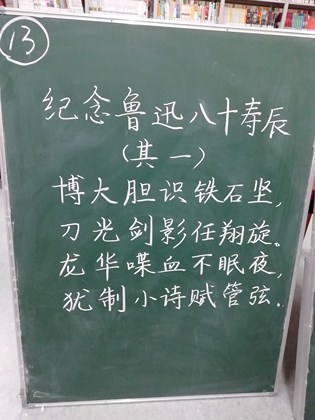 13
纪念鲁迅八十寿辰
(其一)
博大胆识铁石坚,
刀光剑影任翔旋。
龙华喋血不眠夜,
犹制小诗赋管弦.